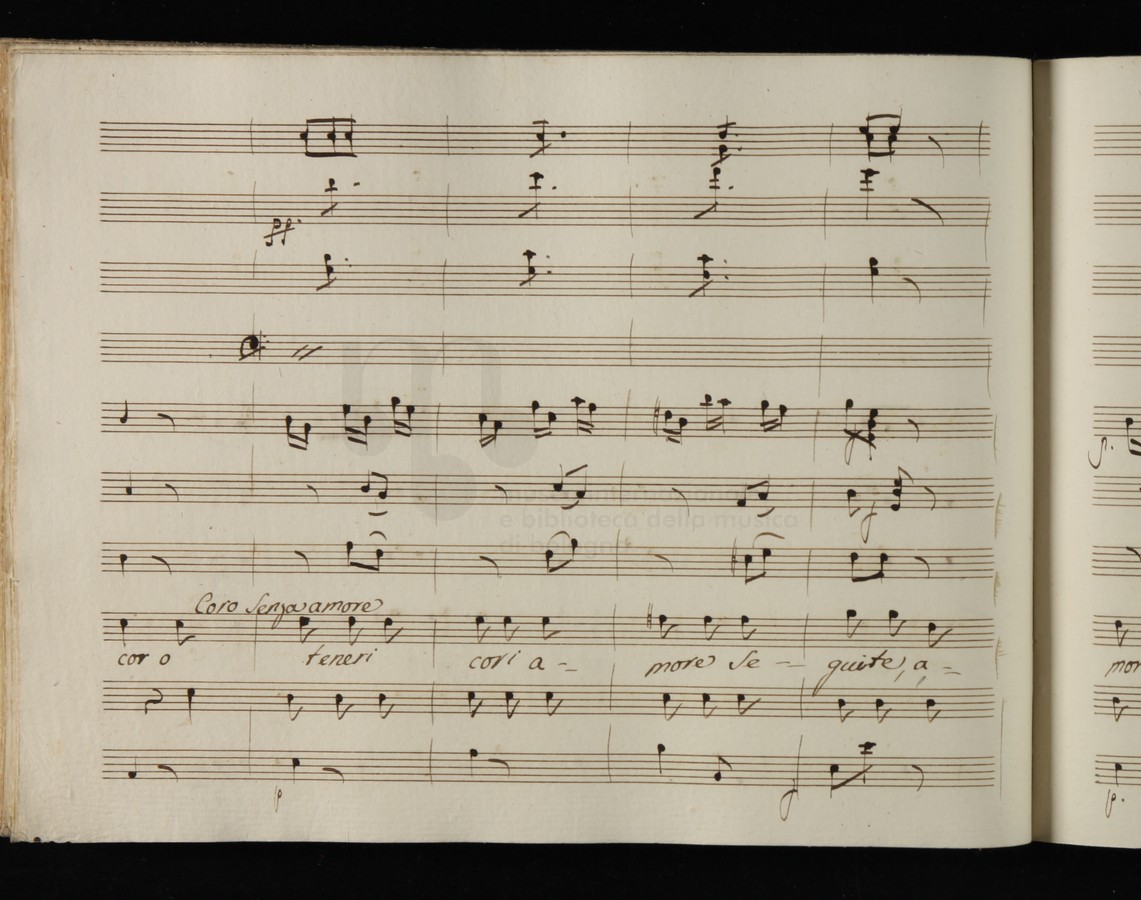 pp.
f
p.
f
Coro Senza amore
coro teneri cori a -- more Se -- guite, a -- mor
p
f
p.
museo internazionale
e biblioteca della musica
di bologna